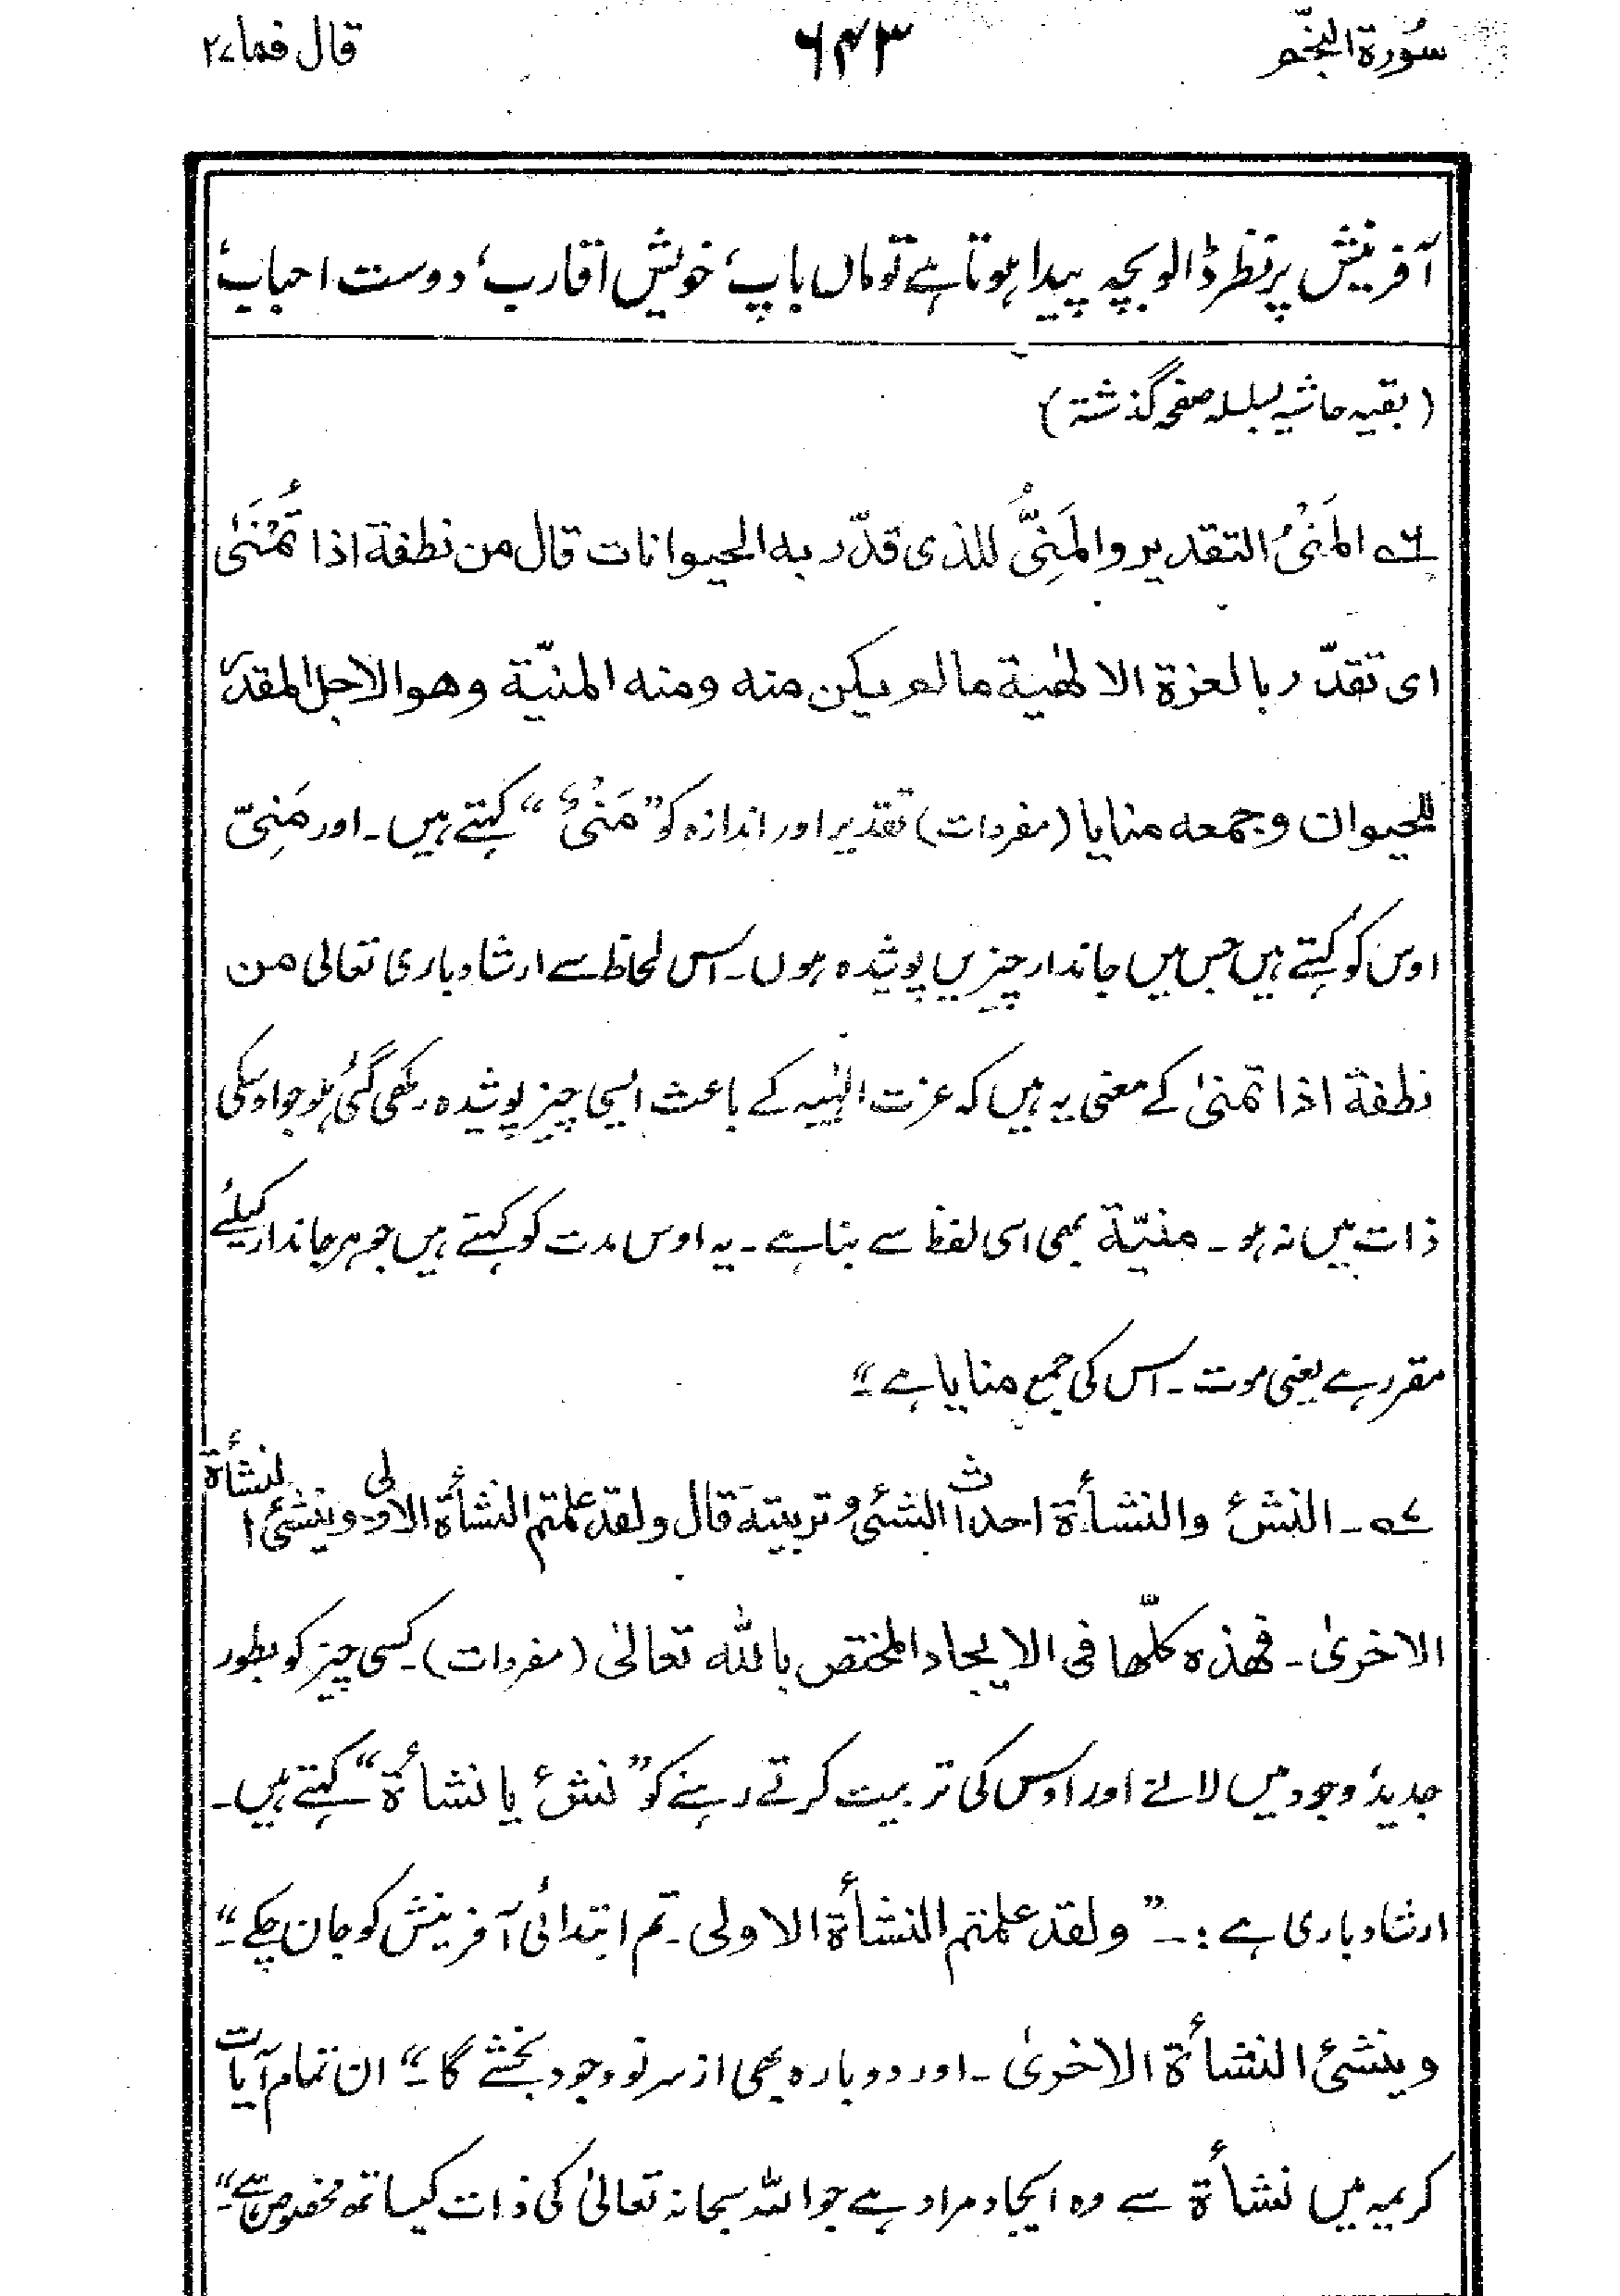 سُورۃ النجّم ۶۴۳ قال فما ۲۷
آفرینش پر نظر ڈالو بچہ پیدا ہوتا ہے تو ماں باپ، خویش اقارب، دوست احباب،
(بقیہ حاشیہ بسلسلہ صفحہ گذشتہ)
۶ے المَنْیُ التقدیر والمَنِیُّ للذی قدّر به الحیوانات قال من نطفة اذا تُمْنَیٰ
ای تقدّر بالعزة الالٰهیة مالم یکن منه ومنه المنیّة وهو الاجل المقدر
للحیوان وجمعه منایا (مفردات) تقدیر اور اندازہ کو ”مَنْیُ“ کہتے ہیں۔ اور مَنِیّ
اوس کو کہتے ہیں جس میں جاندار چیزیں پوشیدہ ہوں۔ اس لحاظ سے ارشاد باری تعالی من
نطفة اذا تمنیٰ کے معنی یہ ہیں کہ عزت الٰہیہ کے باعث ایسی چیز پوشیدہ رکھی گئی ہو جو اوسکی
ذات میں نہ ہو۔ منیّة بھی اسی لفظ سے بنا ہے۔ یہ اوس مدت کو کہتے ہیں جو ہر جاندار کیلئے
مقرر ہے یعنی موت۔ اس کی جمع منایا ہے“
۷ے۔ النشئ والنشأة احداث الشئی وتربیتہ قال ولقد علمتم النشأة الاولی وینشئ النشأة
الاخریٰ۔ فهذه کلّها فی الایجاد المختص بالله تعالیٰ (مفردات)۔ کسی چیز کو بطور
جدید وجود میں لانے اور اوس کی تربیت کرتے رہنے کو ”نشئ یا نشأة“ کہتے ہیں۔
ارشاد باری ہے:۔ ”ولقد علمتم النشأة الاولی۔ تم ابتدائی آفرینش کو جان چکے“
وینشئ النشأة الاخریٰ۔ اور دوبارہ بھی از سر نو وجود بخشے گا“ ان تمام آیات
کریمہ میں نشأة سے وہ ایجاد مراد ہے جو اللہ سبحانہ تعالیٰ کی ذات کیساتھ مخصوص ہے“